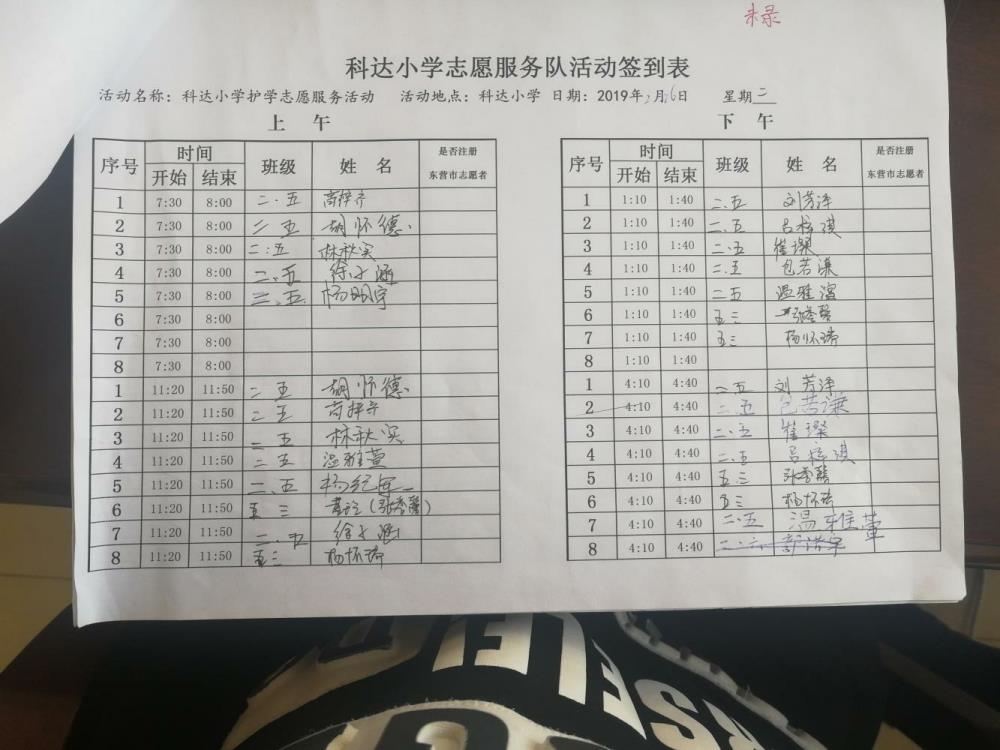 未录
科达小学志愿服务队活动签到表
活动名称：科达小学护学志愿服务活动 活动地点：科达小学 日期：2019年 月16日 星期二
上 午
序号 时间 班级 姓名 是否注册
开始 结束 东营市志愿者
1 7:30 8:00 二.五 高梓齐
2 7:30 8:00 二五 胡怀德
3 7:30 8:00 二.五 林秋实
4 7:30 8:00 二.五 徐子涵
5 7:30 8:00 二.五 杨明宇
6 7:30 8:00
7 7:30 8:00
8 7:30 8:00
1 11:20 11:50 二五 胡怀德
2 11:20 11:50 二五 高梓齐
3 11:20 11:50 二五 林秋实
4 11:20 11:50 二五 温雅萱
5 11:20 11:50 二.五
6 11:20 11:50 五三
7 11:20 11:50 二.五 徐子涵
8 11:20 11:50 五三 杨怀琦
下 午
序号 时间 班级 姓名 是否注册
开始 结束 东营市志愿者
1 1:10 1:40 二.五 刘芳泽
2 1:10 1:40 二.五 吕梓淇
3 1:10 1:40 二.五 崔璨
4 1:10 1:40 二.五 包若谦
5 1:10 1:40 二五 温雅萱
6 1:10 1:40 五三
7 1:10 1:40 五三 杨怀琦
8 1:10 1:40
1 4:10 4:40 二五 刘芳泽
2 4:10 4:40 二.五 包若谦
3 4:10 4:40 二.五 崔璨
4 4:10 4:40 二.五 吕梓淇
5 4:10 4:40 五三
6 4:10 4:40 五三 杨怀琦
7 4:10 4:40 二.五 温雅萱
8 4:10 4:40 二.六